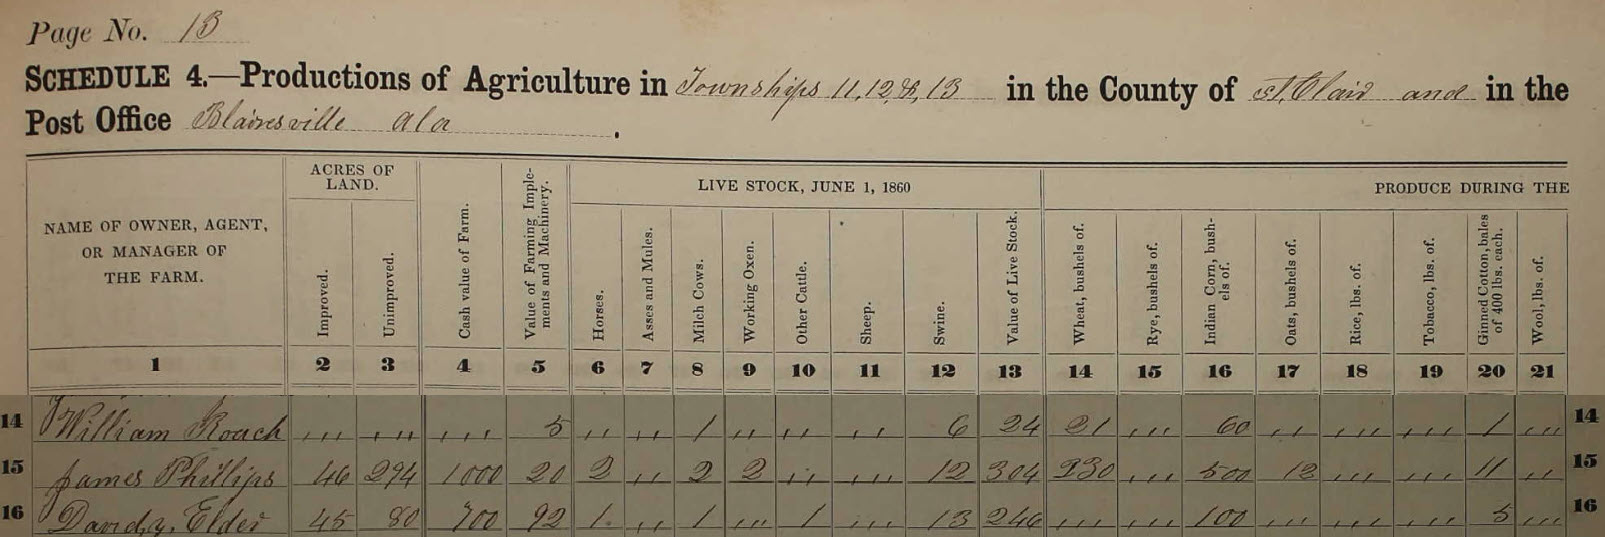 Page No. 13
SCHEDULE 4.—Productions of Agriculture in Townships 11, 12, &, 13 in the County of St. Clair and in the
Post Office Blairesville Ala.
NAME OF OWNER, AGENT, OR MANAGER OF THE FARM.
ACRES OF LAND.
Improved.
Unimproved.
Cash value of Farm.
Value of Farming Implements and Machinery.
LIVE STOCK, JUNE 1, 1860
Horses.
Asses and Mules.
Milch Cows.
Working Oxen.
Other Cattle.
Sheep.
Swine.
Value of Live Stock.
PRODUCE DURING THE
Wheat, bushels of.
Rye, bushels of.
Indian Corn, bushels of.
Oats, bushels of.
Rice, lbs. of.
Tobacco, lbs. of.
Ginned Cotton, bales of 400 lbs. each.
Wool, lbs. of.
1 2 3 4 5 6 7 8 9 10 11 12 13 14 15 16 17 18 19 20 21
14 William Roach ,,, ,,, ,,, 5 ,, ,, 1 ,, ,, ,, 6 24 21 ,,, 60 ,, ,,, ,,, 1 ,,, 14
15 James Phillips 46 294 1000 20 2 ,, 2 2 ,, ,, 12 304 230 ,,, 500 12 ,, ,,, 11 ,, 15
16 David, y. Elder 45 80 700 92 1 ,, 1 ,,, 1 ,,, 13 246 ,,, ,,, 100 ,,, ,,, ,,, 5 ,,, 16